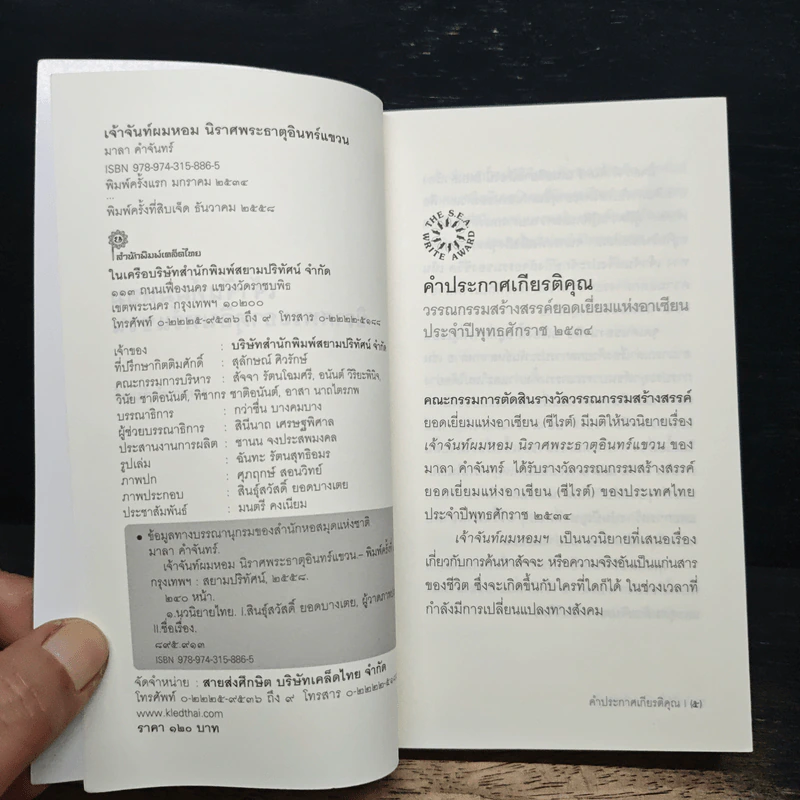 เจ้าจันท์ผมหอม นิราศพระธาตุอินทร์แขวน
มาลา คำจันทร์
ISBN 978-974-315-886-5
พิมพ์ครั้งแรก มกราคม ๒๕๓๔
...
พิมพ์ครั้งที่สิบเจ็ด ธันวาคม ๒๕๕๘
สำนักพิมพ์เคล็ดไทย
ในเครือบริษัทสำนักพิมพ์สยามปริทัศน์ จำกัด
๑๑๓ ถนนเฟื่องนคร แขวงวัดราชบพิธ
เขตพระนคร กรุงเทพฯ ๑๐๒๐๐
โทรศัพท์ ๐-๒๒๒๕-๙๕๓๖ ถึง ๙ โทรสาร ๐-๒๒๒๒-๕๑๘๘
เจ้าของ : บริษัทสำนักพิมพ์สยามปริทัศน์ จำกัด
ที่ปรึกษากิตติมศักดิ์ : สุลักษณ์ ศิวรักษ์
คณะกรรมการบริหาร : สัจจา รัตนโฉมศรี, อนันต์ วิริยะพินิจ,
วินัย ชาติอนันต์, ทิชากร ชาติอนันต์, อาสา นาถไตรภพ
บรรณาธิการ : กว่าชื่น บางคมบาง
ผู้ช่วยบรรณาธิการ : สินีนาถ เศรษฐพิศาล
ประสานงานการผลิต : ชานน จงประสพมงคล
รูปเล่ม : ฉันทะ รัตนสุทธิอมร
ภาพปก : ศุภฤกษ์ สอนวิทย์
ภาพประกอบ : สินธุ์สวัสดิ์ ยอดบางเตย
ประชาสัมพันธ์ : มนตรี คงเนียม
• ข้อมูลทางบรรณานุกรมของสำนักหอสมุดแห่งชาติ
มาลา คำจันทร์.
เจ้าจันท์ผมหอม นิราศพระธาตุอินทร์แขวน.– พิมพ์ครั้งที่
กรุงเทพฯ : สยามปริทัศน์, ๒๕๕๘.
๒๔๐ หน้า.
๑.นวนิยายไทย. I.สินธุ์สวัสดิ์ ยอดบางเตย, ผู้วาดภาพ
II.ชื่อเรื่อง.
๘๙๕.๙๑๓
ISBN 978-974-315-886-5
จัดจำหน่าย : สายส่งศึกษิต บริษัทเคล็ดไทย จำกัด
โทรศัพท์ ๐-๒๒๒๕-๙๕๓๖ ถึง ๙ โทรสาร ๐-๒๒๒๒-๕๑๘๘
www.kledthai.com
ราคา ๑๒๐ บาท
THE S.E.A. WRITE AWARD
คำประกาศเกียรติคุณ
วรรณกรรมสร้างสรรค์ยอดเยี่ยมแห่งอาเซียน
ประจำปีพุทธศักราช ๒๕๓๔
คณะกรรมการตัดสินรางวัลวรรณกรรมสร้างสรรค์
ยอดเยี่ยมแห่งอาเซียน (ซีไรต์) มีมติให้นวนิยายเรื่อง
เจ้าจันท์ผมหอม นิราศพระธาตุอินทร์แขวน ของ
มาลา คำจันทร์ ได้รับรางวัลวรรณกรรมสร้างสรรค์
ยอดเยี่ยมแห่งอาเซียน (ซีไรต์) ของประเทศไทย
ประจำปีพุทธศักราช ๒๕๓๔
เจ้าจันท์ผมหอมฯ เป็นนวนิยายที่เสนอเรื่อง
เกี่ยวกับการค้นหาสัจจะ หรือความจริงอันเป็นแก่นสาร
ของชีวิต ซึ่งจะเกิดขึ้นกับใครที่ใดก็ได้ ในช่วงเวลาที่
กำลังมีการเปลี่ยนแปลงทางสังคม
คำประกาศเกียรติคุณ | (๕)